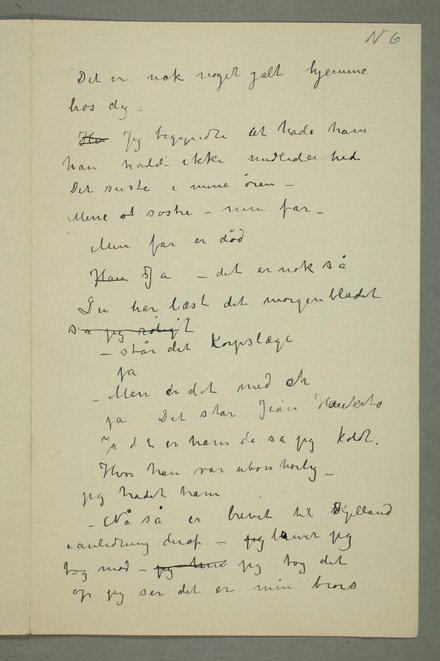 N 6
Det er nok noget galt hjemme
hos dig –
Jeg begyndte at hade ham
han hadde ikke medlidenhed
Det suste i mine ören –
Mene søstre – min far –
Men far er död
Han Ja – det er nok så
Du har læst det morgenbladet
sa jeg roligt
– står det Korpslæge
ja
– Men er det med ch
ja Det står Jean
Ja det er ham da sa jeg koldt.
Hvor han var ubonhorlig –
jeg hadet ham
– Nå så er brevet til Kjelland
i anledning deraf – jeg brevet jeg
tog mod – jeg tog det
op jeg ser det er min brors